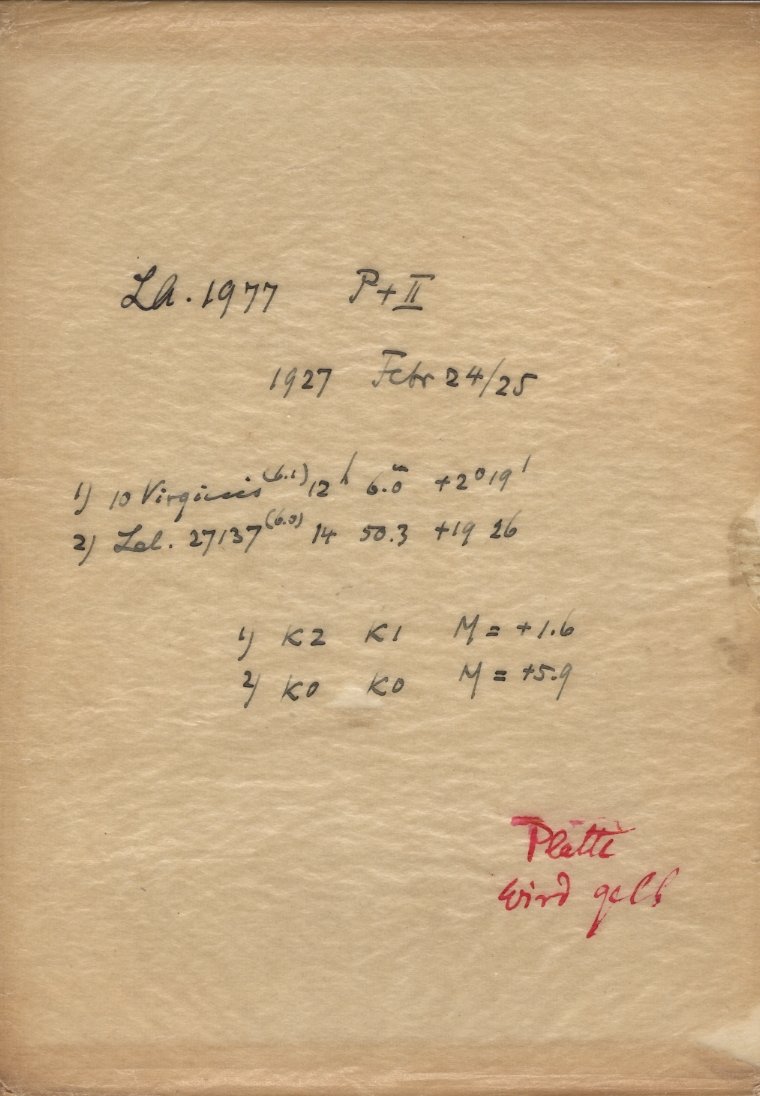 LA. 1977 P+II
1927 Febr 24/25
1) 10 Virginis (6.1) 12h 6.0m +2° 19'
2) Lal. 27137 (6.0) 14 50.3 +19 26
1) K2 K1 M = +1.6
2) K0 K0 M = +5.9
Platte
wird gelb